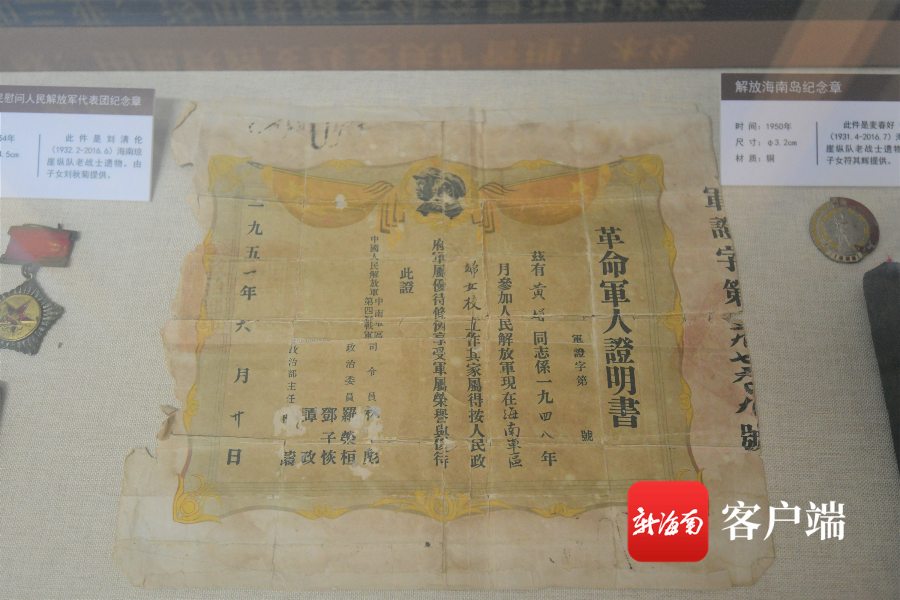 民慰问人民解放军代表团纪念章
54年
4.5cm
此件是刘清伦
（1932.2-2016.6）海南琼
崖纵队老战士遗物。由
子女刘秋菊提供。
解放海南岛纪念章
时间：1950年
尺寸：φ3.2cm
材质：铜
此件是麦春好
（1931.4-2016.7）海
崖纵队老战士遗物
子女符其辉提供。
軍證字第
號
革命軍人證明書
軍證字第 號
茲有黃 同志係一九四八年
月參加人民解放軍現在海南軍區
婦女校 工作其家屬得按人民政
府軍屬優待條例享受軍屬榮譽與優待
此證
中國人民解放軍中南軍區
第四野戰軍
司令員林彪
政治委員羅榮桓
鄧子恢
譚政
政治部主任
一九五一年六月廿日
新海南
客户端